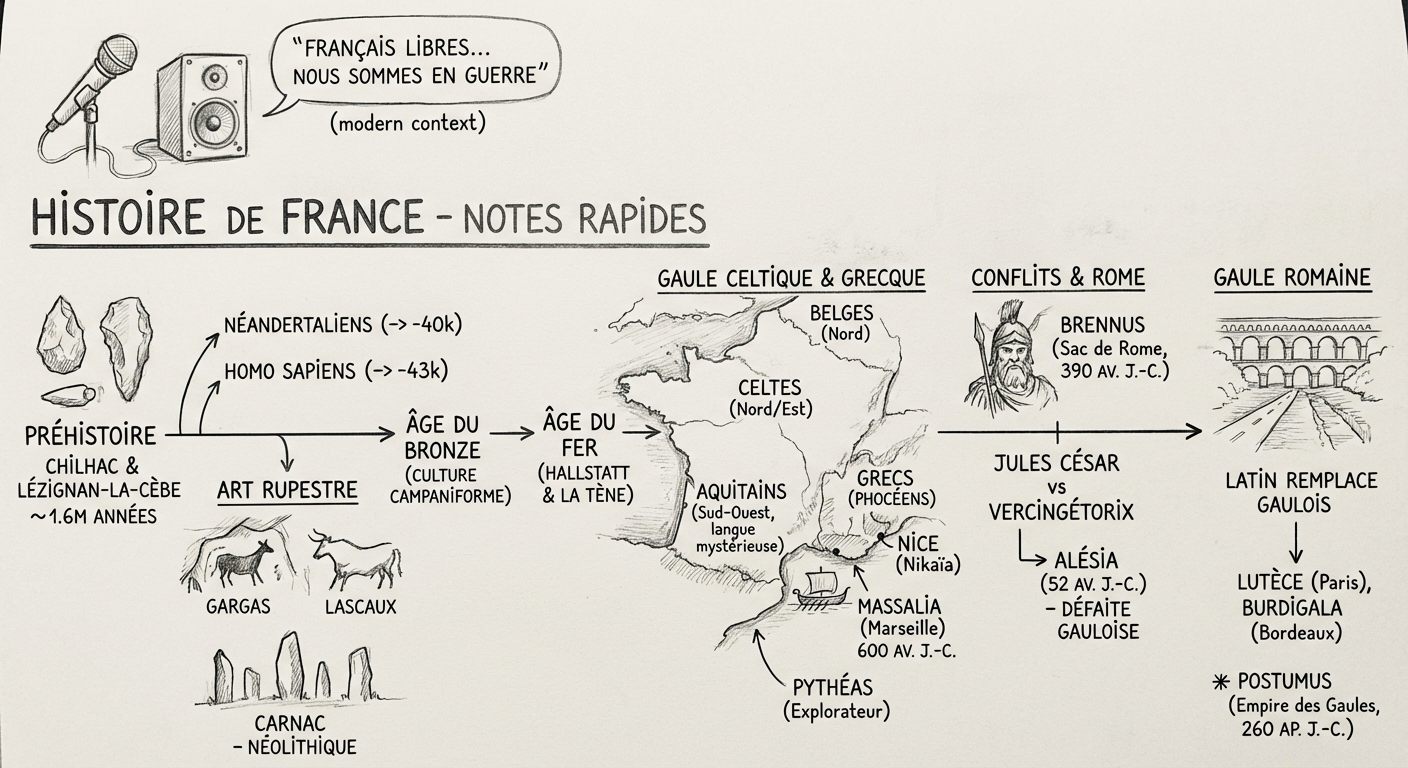 "FRANÇAIS LIBRES...
NOUS SOMMES EN GUERRE"
(modern context)
HISTOIRE DE FRANCE - NOTES RAPIDES
NÉANDERTALIENS (-> -40k)
HOMO SAPIENS (-> -43k)
PRÉHISTOIRE
CHILHAC &
LÉZIGNAN-LA-CÈBE
~1.6M ANNÉES
ART RUPESTRE
GARGAS
LASCAUX
CARNAC
- NÉOLITHIQUE
ÂGE DU
BRONZE
(CULTURE
CAMPANIFORME)
ÂGE DU
FER
(HALLSTATT
& LA TÈNE)
GAULE CELTIQUE & GRECQUE
BELGES
(Nord)
CELTES
(Nord/Est)
AQUITAINS
(Sud-Ouest,
langue
mystérieuse)
GRECS
(PHOCÉENS)
NICE
(Nikaïa)
MASSALIA
(Marseille)
600 AV. J.-C.
PYTHÉAS
(Explorateur)
CONFLITS & ROME
BRENNUS
(Sac de Rome,
390 AV. J.-C.)
JULES CÉSAR
vs
VERCINGÉTORIX
ALÉSIA
(52 AV. J.-C.)
- DÉFAITE
GAULOISE
GAULE ROMAINE
LATIN REMPLACE
GAULOIS
LUTÈCE (Paris),
BURDIGALA
(Bordeaux)
* POSTUMUS
(Empire des Gaules,
260 AP. J.-C.)